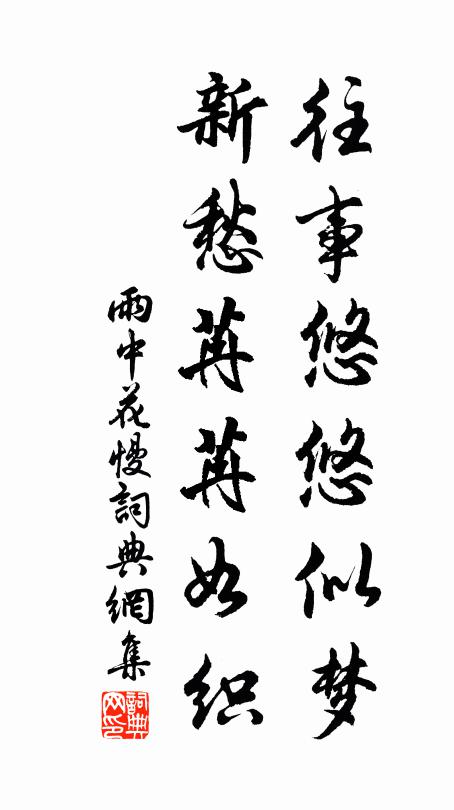 往事悠悠似梦
新愁苒苒如织
雨中花慢詞典網集
詞典网印